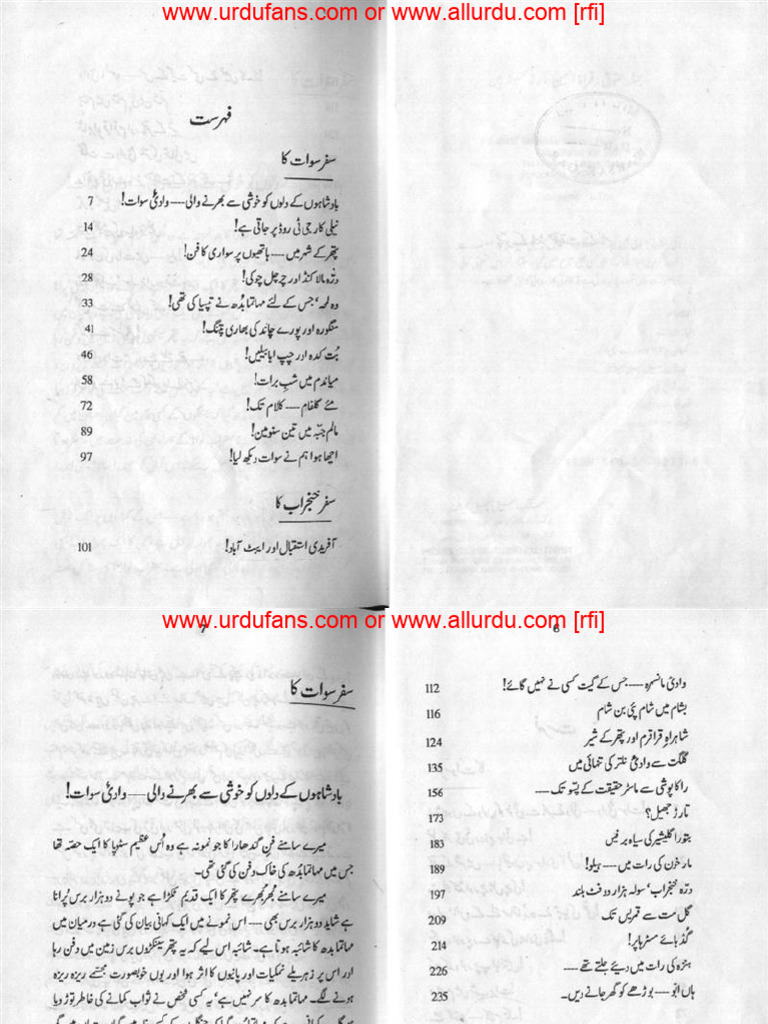 www.urdufans.com or www.allurdu.com [rfi]
فہرست
سفر سوات کا
بادشاہوں کے دلوں کو خوشی سے بھرنے والی ---- وادیٔ سوات! 7
نیلی کار جی ٹی روڈ پر جاتی ہے! 14
پتھر کے شہر میں ---- ہاتھیوں پر سواری کا فن! 24
درّہ مالاکنڈ اور چرچل چوکی! 28
وہ لمحہ‘ جس کے لئے مہاتما بُدھ نے تپسیا کی تھی! 33
منگورہ اور پورے چاند کی بھاری پتنگ! 41
بُت کدہ اور چپ ابابیلیں! 46
میاندم میں شبِ برات! 58
مئے گلفام ---- کلام تک! 72
مالم جبّہ میں تین سنومین! 89
اچھا ہوا ہم نے سوات دیکھ لیا! 97
سفر خنجراب کا
آفریدی استقبال اور ایبٹ آباد! 101
www.urdufans.com or www.allurdu.com [rfi]
6
وادیٔ مانسہرہ ---- جس کے گیت کسی نے نہیں گائے! 112
بشام میں شام پئی بن شام 116
شاہراہِ قراقرم اور پتھر کے شیر 124
گلگت سے وادیٔ نلتر کی تنہائی میں 135
راکاپوشی سے ماسٹر حقیقت کے پسّو تک ---- 156
تارڑ جھیل؟ 173
بتورا گلیشیر کی سیاہ برفیں 183
مارخون کی رات میں ---- ہیلو! 189
درّہ خنجراب‘ سولہ ہزار دو فٹ بلند 197
گل مت سے قمریس تک 209
گُڈ بائے مسٹر ہاپر! 214
ہنزہ کی رات میں دیئے جلتے تھے ---- 226
ہاں ابو --- بوڑھے کو گھر جانے دیں۔ 235
7
سفر سوات کا
بادشاہوں کے دلوں کو خوشی سے بھرنے والی ---- وادیٔ سوات!
میرے سامنے فنِ گندھارا کا جو نمونہ ہے وہ اُس عظیم سٹوپا کا ایک حصہ تھا
جس میں مہاتما بُدھ کی خاک دفن کی گئی تھی۔
میرے سامنے بھُربھُرے پتھر کا ایک قدیم ٹکڑا ہے جو پونے دو ہزار برس پُرانا
ہے شاید دو ہزار برس بھی ---- اس نمونے میں ایک کہانی بیان کی گئی ہے درمیان میں
مہاتما بدھ کا شائبہ ہوتا ہے۔ شائبہ اس لیے کہ یہ پتھر سینکڑوں برس زمین میں دفن رہا
اور اس پر زہریلے نمکیات اور پانیوں کا اثر ہوا اور یوں خوبصورت مجسمے ریزہ ریزہ
ہونے لگے۔ مہاتما بدھ کا سر نہیں ہے‘ یہ کسی شخص نے ثواب کمانے کی خاطر توڑ دیا